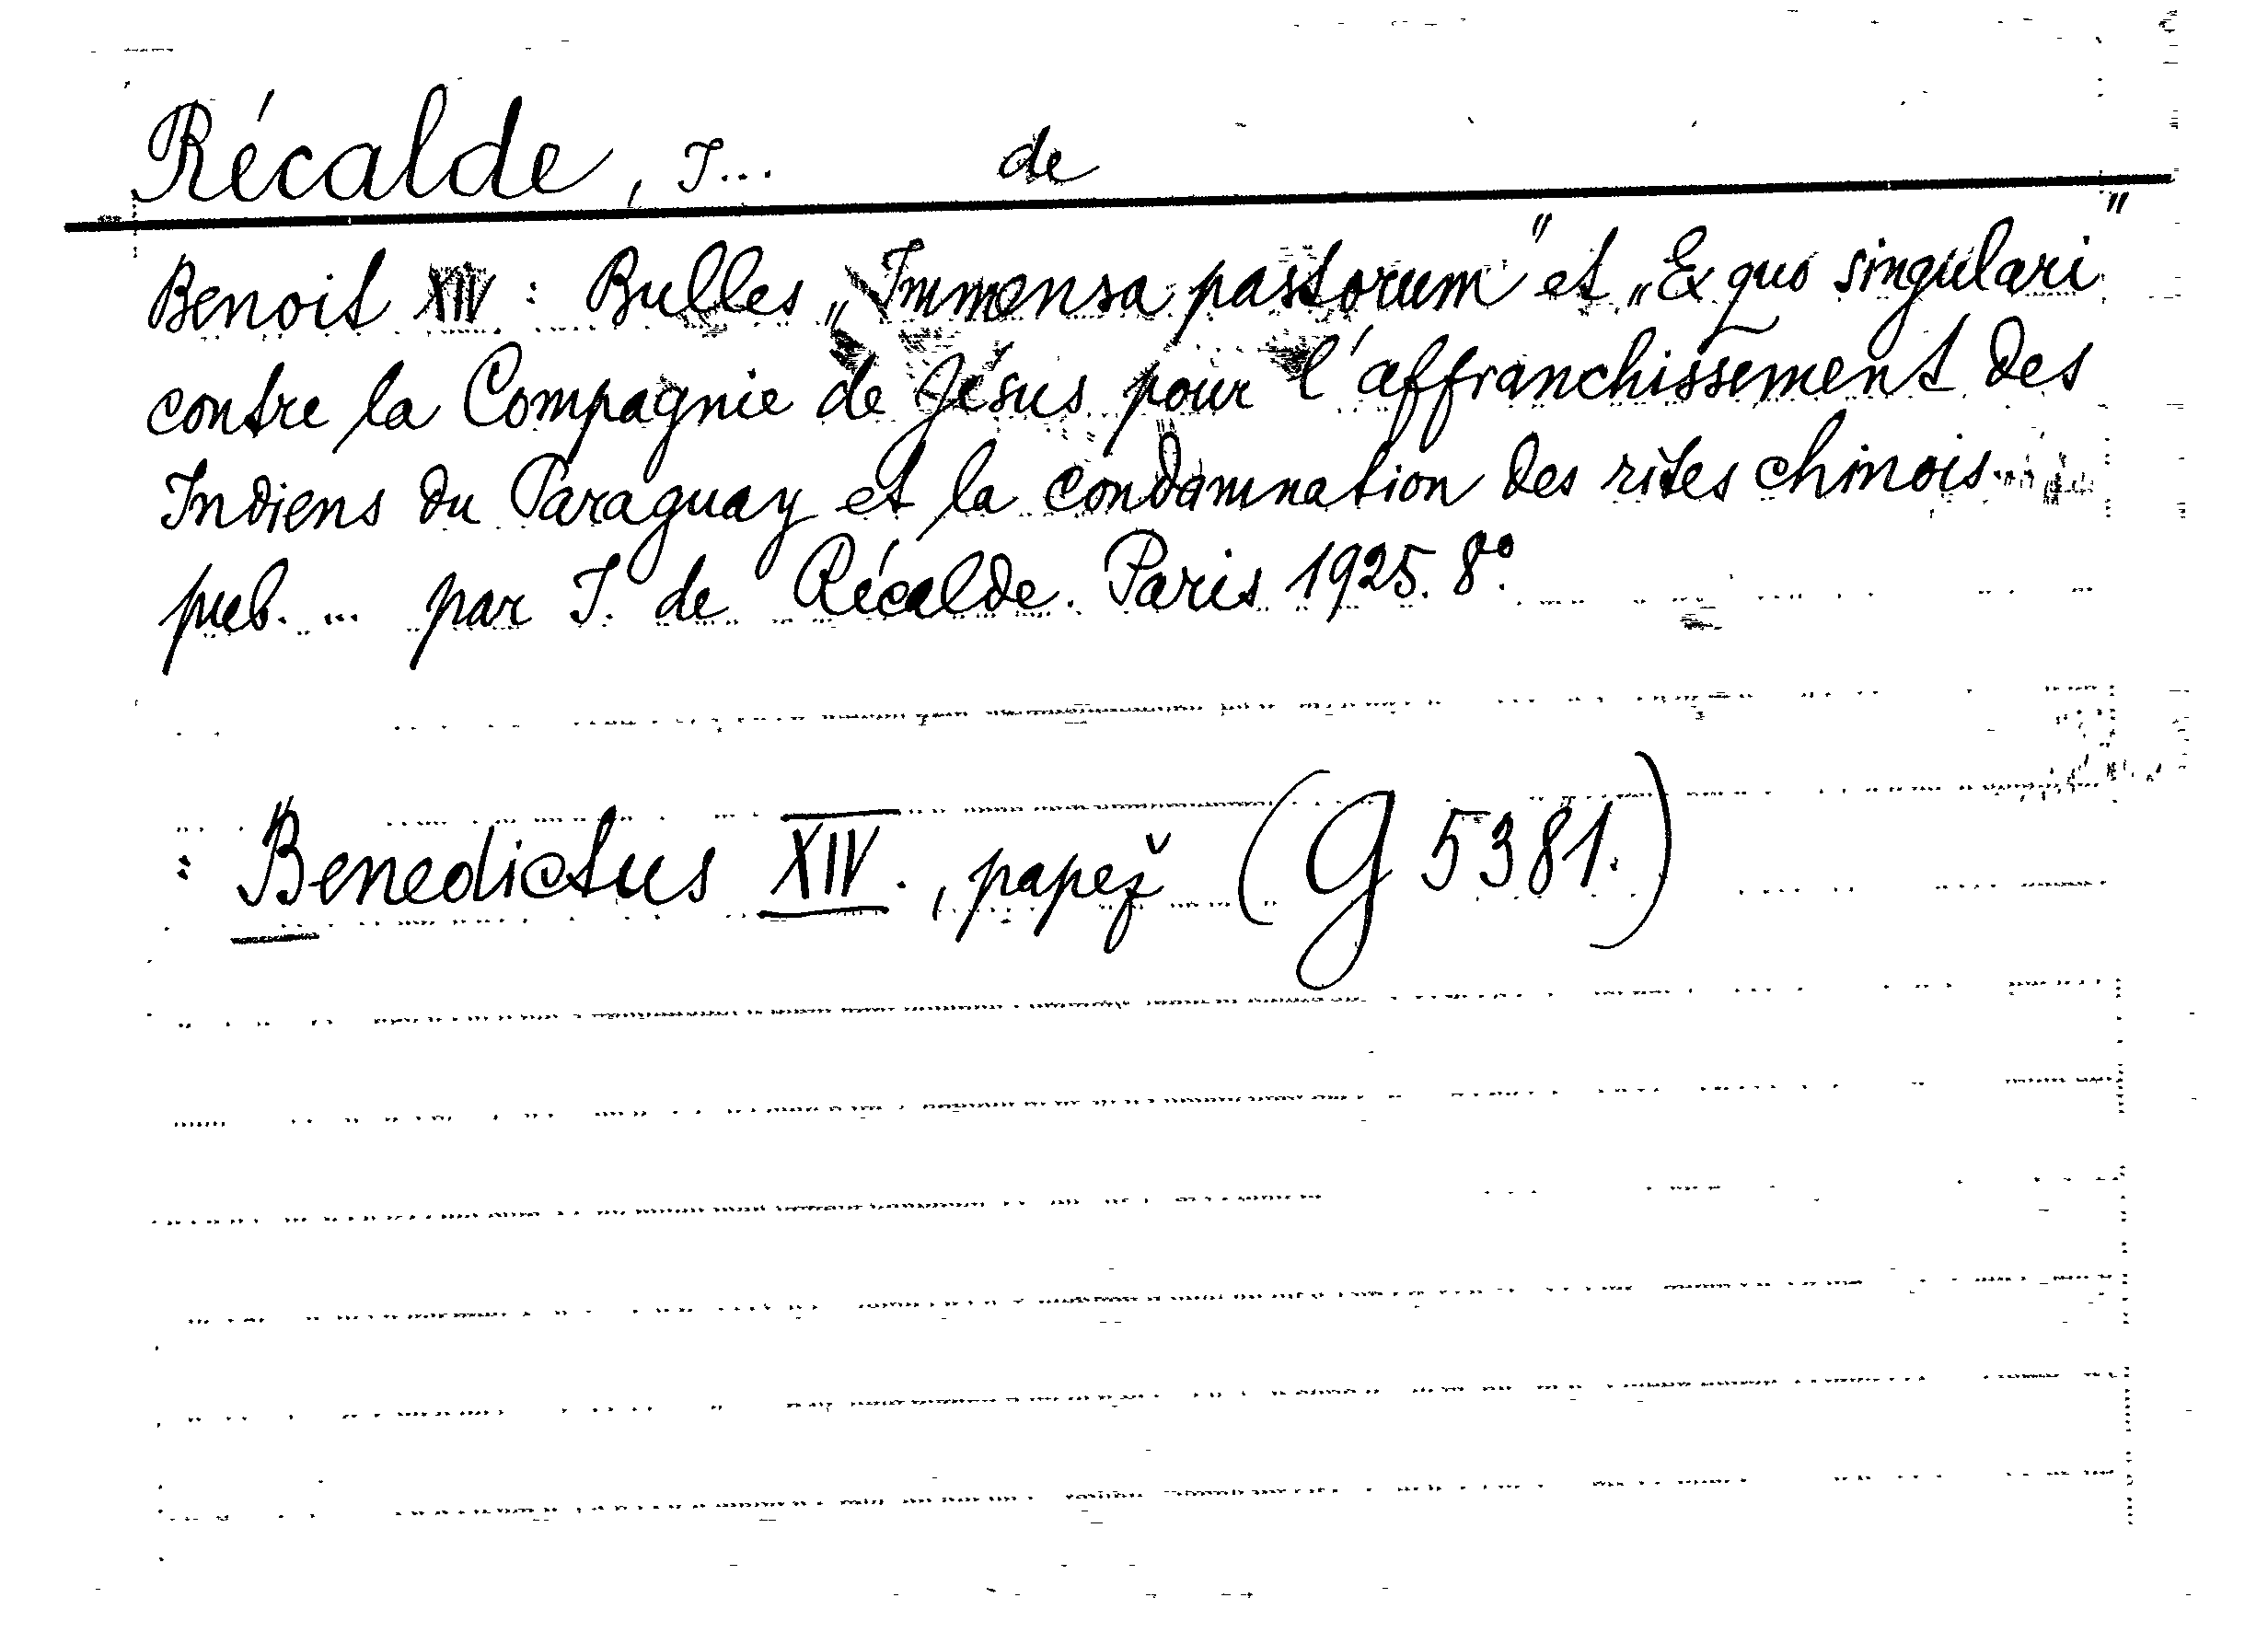 Récalde, I... de
Benoit XIV : Bulles „Immensa pastorum" et „Ex quo singulari"
contre la Compagnie de Jésus pour l'affranchissement des
Indiens du Paraguay et la condamnation des rites chinois...
pub. ... par I. de Récalde. Paris 1925. 8°.
: Benedictus XIV., papež (G 5381.)